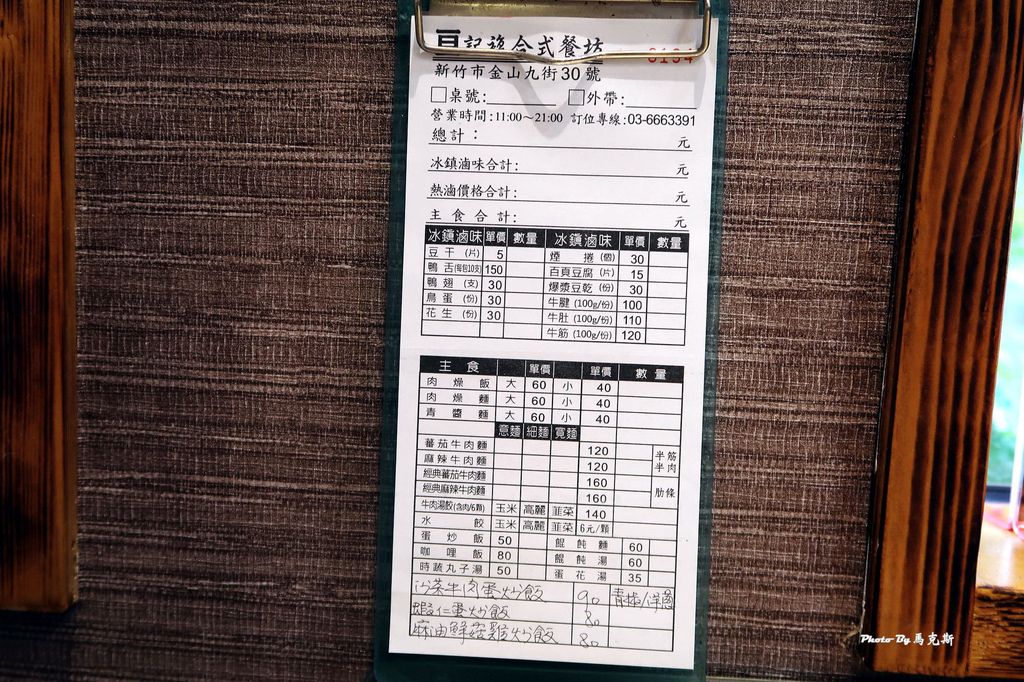 豆記複合式餐坊
新竹市金山九街30號
桌號: 外帶:
營業時間:11:00～21:00 訂位專線:03-6663391
總計: 元
冰鎮滷味合計: 元
熱滷價格合計: 元
主食合計: 元
冰鎮滷味 單價 數量 冰鎮滷味 單價 數量
豆干(片) 5 煙捲(個) 30
鴨舌(每包10支) 150 百頁豆腐(片) 15
鴨翅(支) 30 爆漿豆乾(份) 30
鳥蛋(份) 30 牛腱(100g/份) 100
花生(份) 30 牛肚(100g/份) 110
牛筋(100g/份) 120
主食 單價 單價 數量
肉燥飯 大 60 小 40
肉燥麵 大 60 小 40
青醬麵 大 60 小 40
意麵 細麵 寬麵
蕃茄牛肉麵 120 半筋
麻辣牛肉麵 120 半肉
經典蕃茄牛肉麵 160
經典麻辣牛肉麵 160 肋條
牛肉湯餃(含肉/6顆) 玉米 高麗 韮菜 140
水餃 玉米 高麗 韮菜 6元/顆
蛋炒飯 50 餛飩麵 60
咖哩飯 80 餛飩湯 60
時蔬丸子湯 50 蛋花湯 35
沙茶牛肉蛋炒飯 90
蝦仁蛋炒飯 80
麻油鮮菇雞炒飯 80
Photo By 馬克斯